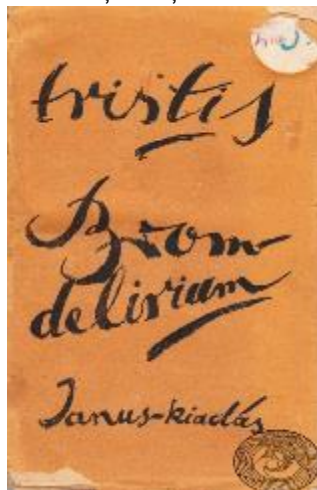 tristis
Brom-
delirium
Janus-kiadás